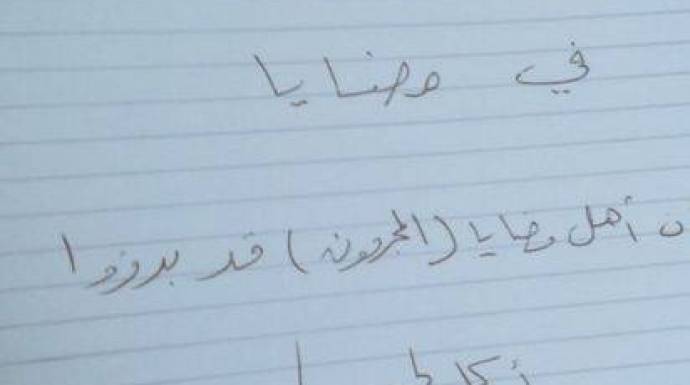 في مضايا
ن أهل مضايا (المجرمون) قد بدؤوا